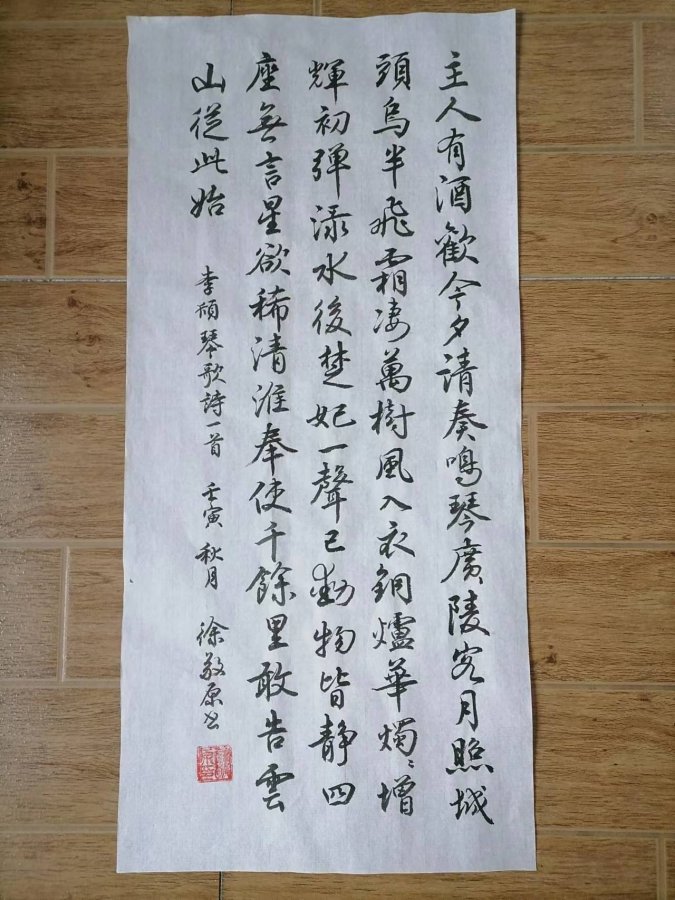 主人有酒歡今夕請奏鳴琴廣陵客月照城
頭烏半飛霜凄萬樹風入衣銅爐華燭〻增
輝初弹渌水後楚妃一聲已動物皆静四
座無言星欲稀清淮奉使千餘里敢告雲
山從此始
李頎琴歌詩一首 壬寅 秋月 徐敬原书